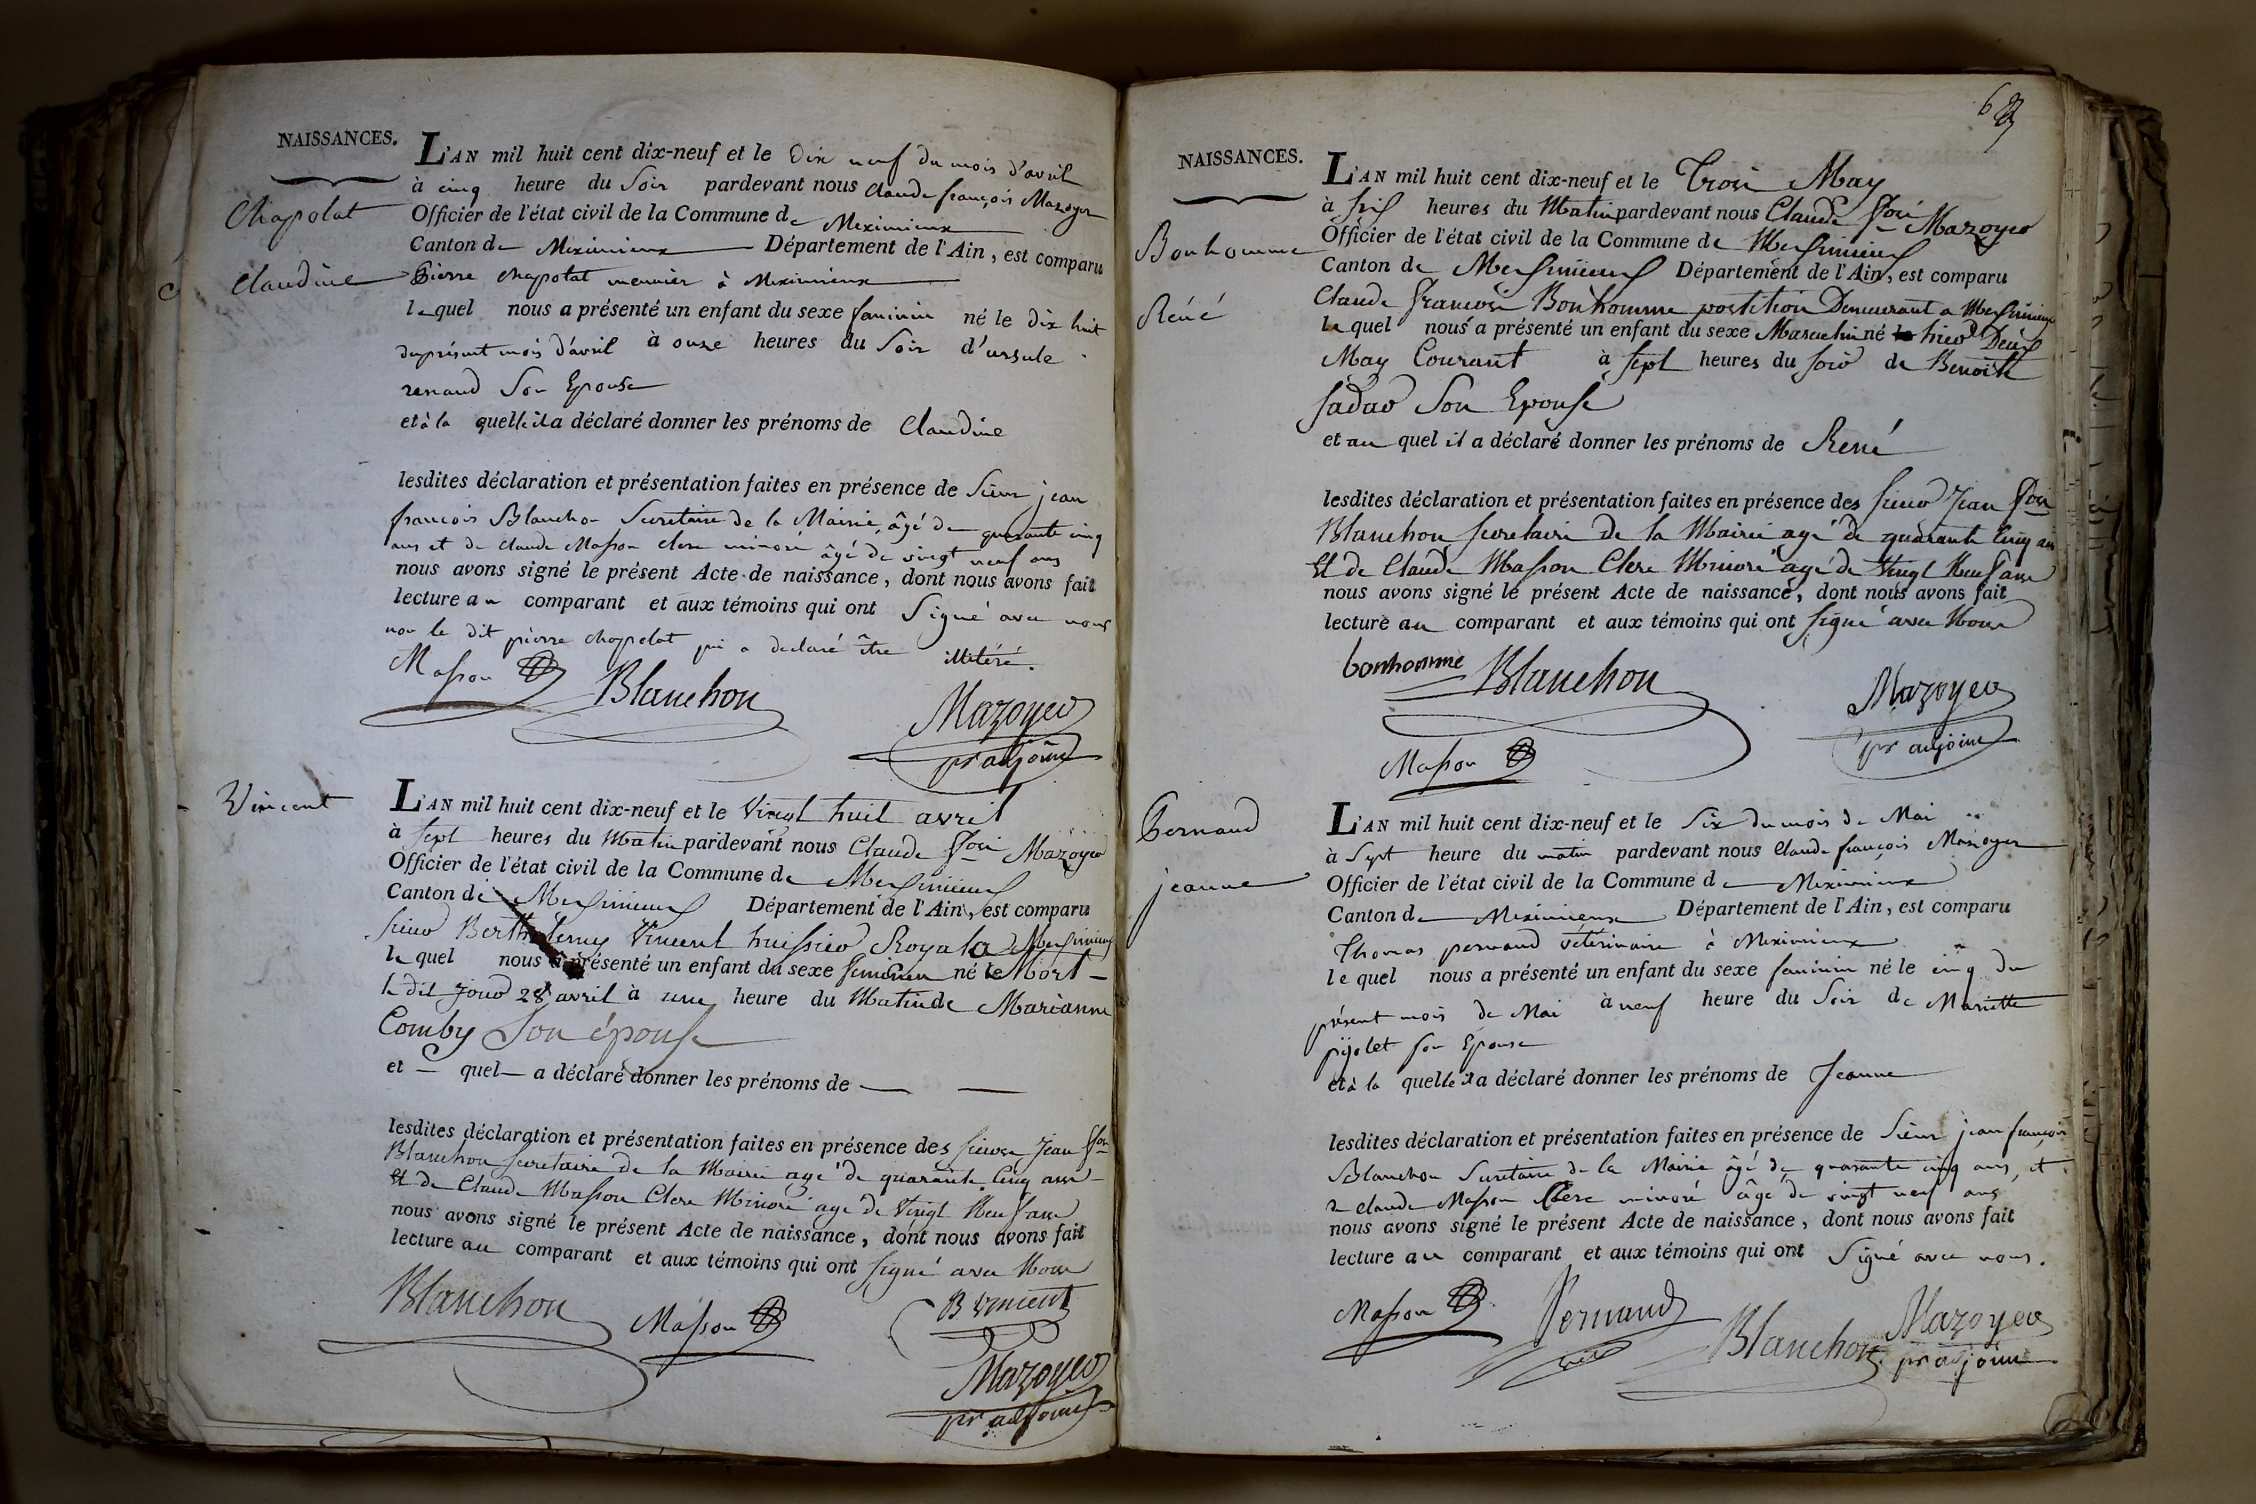 NAISSANCES.
Chapolat
Claudine
L'AN mil huit cent dix-neuf et le dix neuf du mois d'avril
à cinq heure du Soir pardevant nous Claude françois Mazoyer
Officier de l'état civil de la Commune de Meximieux
Canton de Meximieux Département de l'Ain, est comparu
Pierre Chapolat meunier à Meximieux
lequel nous a présenté un enfant du sexe féminin né le dix huit
du présent mois d'avril à onze heures du Soir d'ursule
renaud Son Epouse
et à la quelle il a déclaré donner les prénoms de Claudine
lesdites déclaration et présentation faites en présence de Sieur jean
françois Blanchon Secretaire de la Mairie, âgé de quarante cinq
ans et de Claude Masson Clerc minoré âgé de vingt neuf ans
nous avons signé le présent Acte de naissance, dont nous avons fait
lecture au comparant et aux témoins qui ont Signé avec nous
non le dit pierre Chapolat qui a declaré être illitéré.
Masson Blanchon
Mazoyer
pr adjoint
Vincent
L'AN mil huit cent dix-neuf et le Vingt huit avril
à Sept heures du Matin pardevant nous Claude fois Mazoyer
Officier de l'état civil de la Commune de Mexsimieux
Canton de Mexsimieux Département de l'Ain, est comparu
Sieur Berthelemy Vincent huissier Royal a Mexsimieux
le quel nous a présenté un enfant du sexe feminin né le Mort
le dit Jour 28 avril à une heure du Matin de Marianne
Comby Son épouse
et — quel — a déclaré donner les prénoms de —
lesdites déclaration et présentation faites en présence des Sieurs Jean fois
Blanchon Secretaire de la Mairie agé de quarante Cinq ans
Et de Claude Masson Clerc Minoré agé de Vingt Neuf ans
nous avons signé le présent Acte de naissance, dont nous avons fait
lecture au comparant et aux témoins qui ont Signé avec Nous
Blanchon Masson B Vincent
Mazoyer
pr adjoint
NAISSANCES.
Bonhomme
Réné
L'AN mil huit cent dix-neuf et le Trois May
à Six heures du Matin pardevant nous Claude fois Mazoyer
Officier de l'état civil de la Commune de Mexsimieux
Canton de Mexsimieux Département de l'Ain, est comparu
Claude Francois Bonhomme postillon Demeurant a Mexsimieux
le quel nous a présenté un enfant du sexe Masculin né hier Deux
May Courant à Sept heures du soir de Benoite
Son Epouse
et au quel il a déclaré donner les prénoms de René
lesdites déclaration et présentation faites en présence des Sieur Jean fois
Blanchon Secretaire de la Mairie agé de quarante Cinq ans
Et de Claude Masson Clerc Minoré agé de Vingt Neuf ans
nous avons signé le présent Acte de naissance, dont nous avons fait
lecture au comparant et aux témoins qui ont Signé avec Nous
bonhomme Blanchon
Mazoyer
pr adjoint
Masson
Pernaud
jeanne
L'AN mil huit cent dix-neuf et le Six du mois de Mai
à Sept heure du matin pardevant nous Claude françois Mazoyer
Officier de l'état civil de la Commune de Meximieux
Canton de Meximieux Département de l'Ain, est comparu
Thomas pernaud vétérinaire à Meximieux
le quel nous a présenté un enfant du sexe féminin né le cinq du
présent mois de Mai à neuf heure du Soir de Mariette
pijolet Son Epouse
et à la quelle il a déclaré donner les prénoms de Jeanne
lesdites déclaration et présentation faites en présence de Sieur jean françois
Blanchon Secretaire de la Mairie âgé de quarante cinq ans, et
de Claude Masson Clerc minoré âgé de vingt neuf ans
nous avons signé le présent Acte de naissance, dont nous avons fait
lecture au comparant et aux témoins qui ont Signé avec nous.
Masson Pernaud Blanchon Mazoyer
pr adjoint